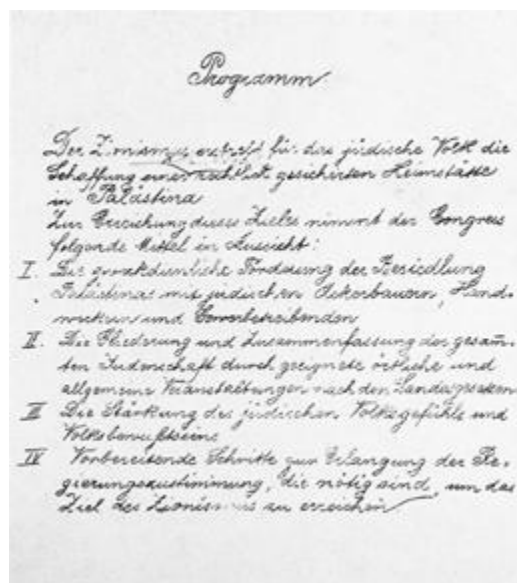 Programm
Der Zionismus erstrebt für das jüdische Volk die
Schaffung einer rechtlich gesicherten Heimstätte
in Palästina
Zur Erreichung dieses Zieles nimmt der Congress
folgende Mittel in Aussicht:
I. Die Förderung der Besiedlung
Palästinas mit jüdischen Ackerbauern, Hand-
werkern und Gewerbetreibenden
II. Die Gliederung und Zusammenfassung der gesam̄-
ten Judenschaft durch geeignete örtliche und
allgemeine Veranstaltungen nach den Landesgesetzen
III Die Stärkung des jüdischen Volksgefühls und
Volksbewußtseins
IV Vorbereitende Schritte zur Erlangung der Re-
gierungszustimmung, die nötig sind, um das
Ziel des Zionismus zu erreichen